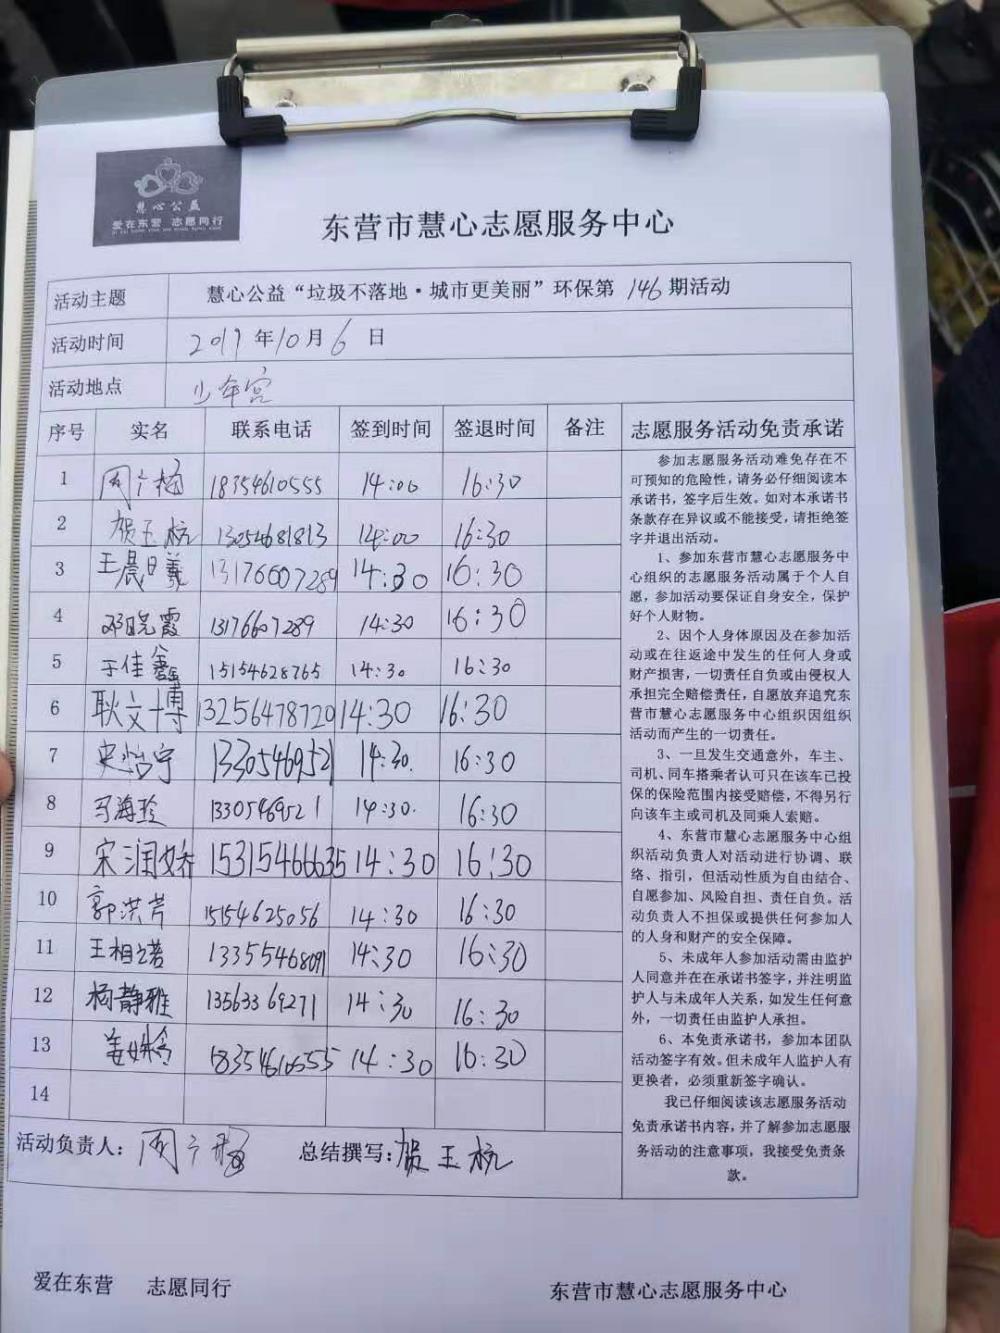 慧心公益
爱在东营 志愿同行
东营市慧心志愿服务中心
活动主题 慧心公益“垃圾不落地·城市更美丽”环保第 146 期活动
活动时间 2019 年 10 月 6 日
活动地点 少年宫
序号 实名 联系电话 签到时间 签退时间 备注
1 周广梅 18354610555 14:00 16:30
2 贺玉杭 13054681813 14:00 16:30
3 王晨曦 13176607289 14:30 16:30
4 邓晓霞 13176607289 14:30 16:30
5 于佳鑫 15154628765 14:30 16:30
6 耿文博 13256478720 14:30 16:30
7 史怡宁 13305469521 14:30. 16:30
8 马海珍 13305469521 14:30. 16:30
9 宋润娇 15315466635 14:30 16:30
10 郭洪芹 15154625056 14:30 16:30
11 王相 13355468091 14:30 16:30
12 杨静雅 13563369271 14:30 16:30
13 姜 18354610555 14:30 16:30
14
活动负责人: 周广梅 总结撰写: 贺玉杭
志愿服务活动免责承诺
参加志愿服务活动难免存在不
可预知的危险性，请务必仔细阅读本
承诺书，签字后生效。如对本承诺书
条款存在异议或不能接受，请拒绝签
字并退出活动。
1、参加东营市慧心志愿服务中
心组织的志愿服务活动属于个人自
愿，参加活动要保证自身安全，保护
好个人财物。
2、因个人身体原因及在参加活
动或在往返途中发生的任何人身或
财产损害，一切责任自负或由侵权人
承担完全赔偿责任，自愿放弃追究东
营市慧心志愿服务中心组织因组织
活动而产生的一切责任。
3、一旦发生交通意外，车主、
司机、同车搭乘者认可只在该车已投
保的保险范围内接受赔偿，不得另行
向该车主或司机及同乘人索赔。
4、东营市慧心志愿服务中心组
织活动负责人对活动进行协调、联
络、指引，但活动性质为自由结合、
自愿参加、风险自担、责任自负。活
动负责人不担保或提供任何参加人
的人身和财产的安全保障。
5、未成年人参加活动需由监护
人同意并在在承诺书签字，并注明监
护人与未成年人关系，如发生任何意
外，一切责任由监护人承担。
6、本免责承诺书，参加本团队
活动签字有效。但未成年人监护人有
更换者，必须重新签字确认。
我已仔细阅读该志愿服务活动
免责承诺书内容，并了解参加志愿服
务活动的注意事项，我接受免责条
款。
爱在东营 志愿同行 东营市慧心志愿服务中心